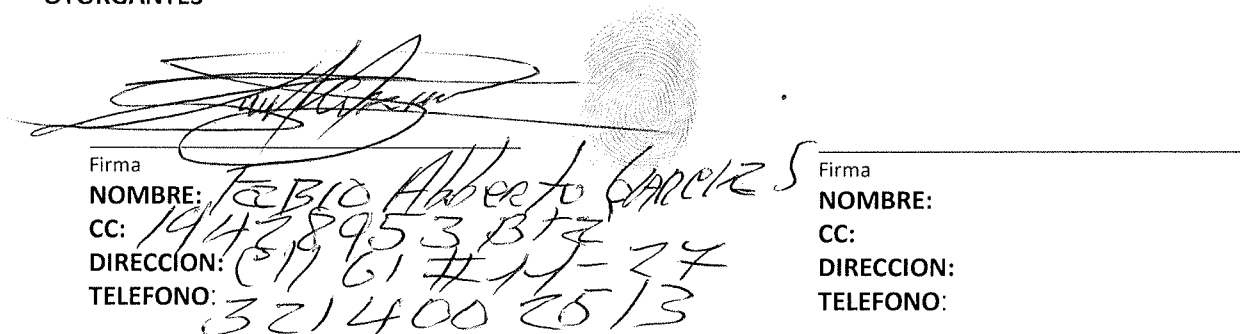 OTORGANTES
Firma
NOMBRE: Fabio Alberto Garcia S
CC: 19428953 Bta
DIRECCION: Cll 61 # 14-27
TELEFONO: 321400 2513
Firma
NOMBRE:
CC:
DIRECCION:
TELEFONO: